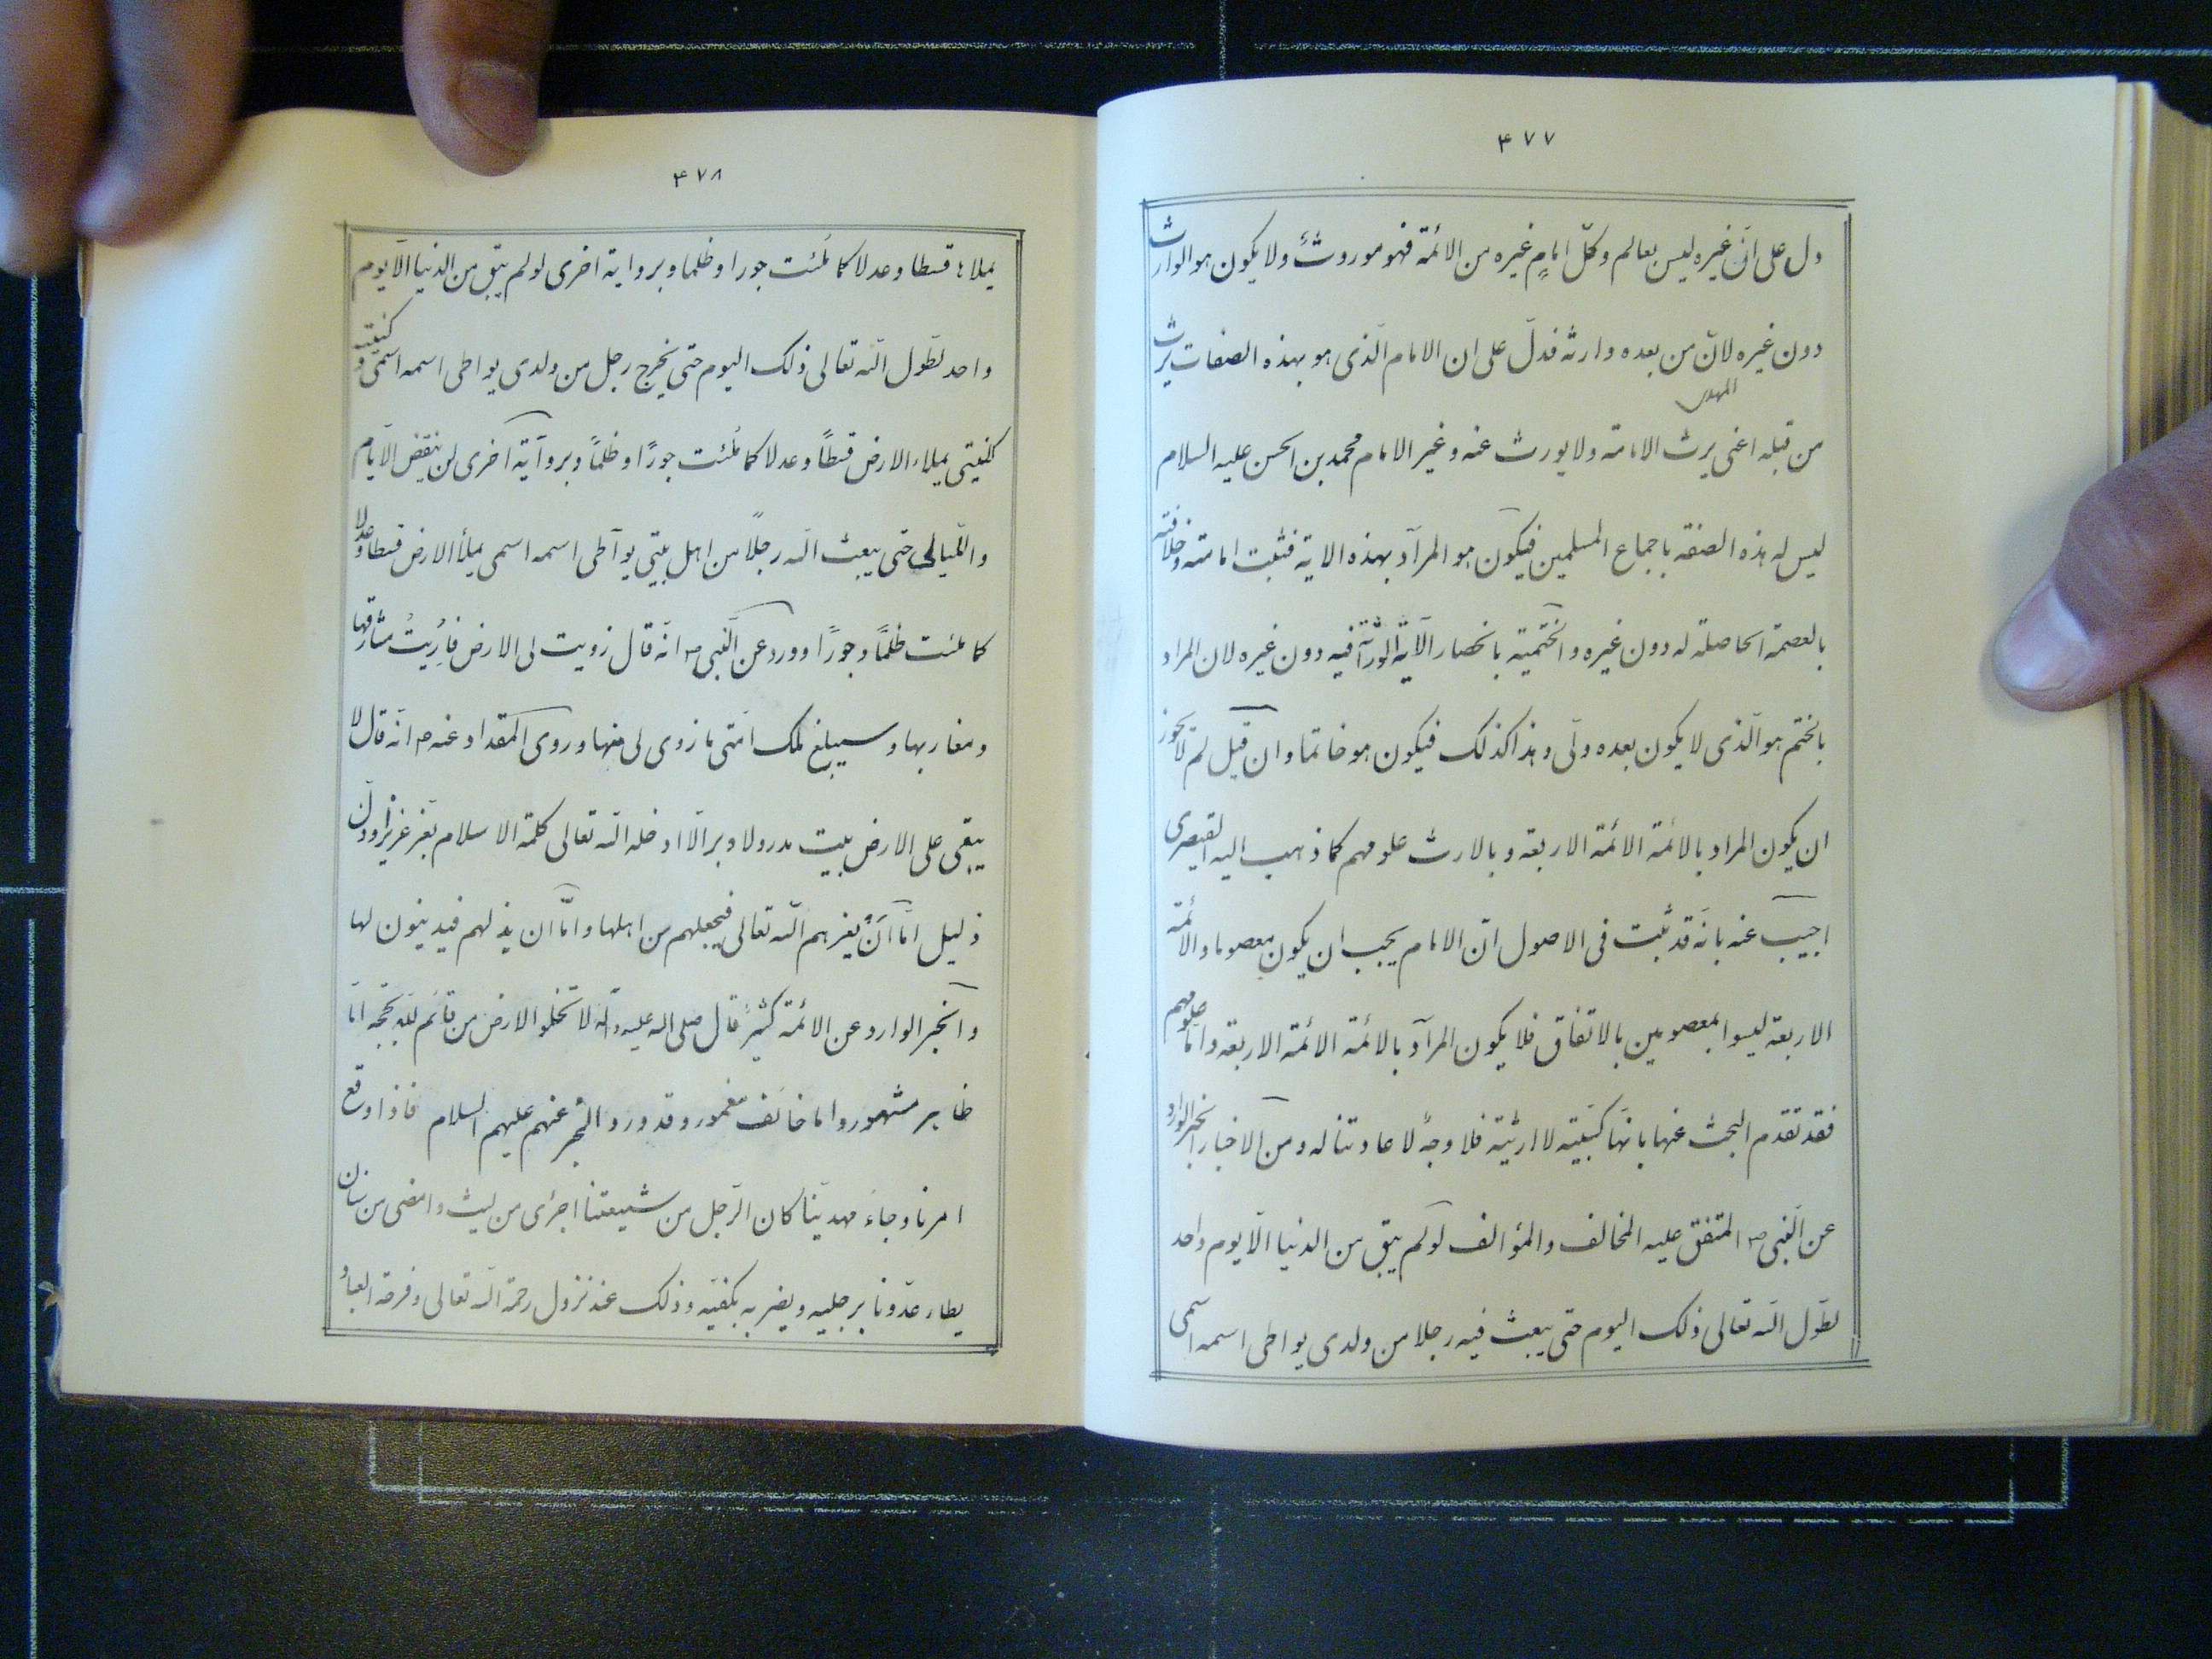 ۴۷۷
دل على انّ غيره ليس بعالم وكلّ امامٍ غيره من الائمّة فهو موروثٌ ولا يكون هو الوارث
دون غيره لانّ من بعده وارثه فدلّ على ان الامام الّذى هو بهذه الصفات يرث
المهدى
من قبله اعنى يرث الامامة ولا يورث عنه وغير الامام محمد بن الحسن عليه السلام
ليس له هذه الصفة باجماع المسلمين فيكون هو المراد بهذه الاية فثبت امامته وخلافته
بالعصمة الحاصلة له دون غيره والختمية بانحصار الآية فيه دون غيره لان المراد
بالختم هو الّذى لا يكون بعده ولّى وهذا كذلك فيكون هو خاتما وان قيل لم لا يجوز
ان يكون المراد بالائمّة الائمّة الاربعة وبالارث علومهم كما ذهب اليه القيصرى
اجيب عنه بانّه قد ثبت فى الاصول انّ الامام يجب ان يكون معصوما والائمّة
الاربعة ليسوا بمعصومين بالاتفاق فلا يكون المراد بالائمّة الائمّة الاربعة وامّا علومهم
فقد تقدم البحث عنها بانّها كسبيّة لا ارثيّة فلا وجه لاعادتنا له ومن الاخبار الخبر الوارد
عن النّبى ص المتفق عليه المخالف والمؤالف لو لم يبق من الدنيا الّا يوم واحد
لطوّل اللّه تعالى ذلك اليوم حتى يبعث فيه رجلا من ولدى يواطى اسمه اسمى
۴۷۸
يملاءها قسطا وعدلا كما ملئت جورا وظلما وبرواية اخرى لو لم يبق من الدنيا الّا يوم
واحد لطوّل اللّه تعالى ذلك اليوم حتى يخرج رجل من ولدى يواطى اسمه اسمى وكنيته
كنيتى يملاء الارض قسطًا وعدلا كما ملئت جورًا وظلمًا وبرواية اخرى لن ينقض الايّام
واللّيالى حتى يبعث اللّه رجلًا من اهل بيتى يواطى اسمه اسمى يملأ الارض قسطا وعدلا
كما ملئت ظلمًا وجورًا وورد عن النّبى ص انّه قال زويت لى الارض فاُريتُ مشارقها
ومغاربها وسيبلغ ملك امّتى ما زوى لى منها وروى المقداد عنه ص انّه قال لا
يبقى على الارض بيت مدر ولا وبر الّا ادخله اللّه تعالى كلمة الاسلام بعزّ عزيز او ذلّ
ذليل امّا انْ يعزهم اللّه تعالى فيجعلهم من اهلها وامّا ان يذلهم فيدينون لها
والخبر الوارد عن الائمّة كثيرٌ قال صلى اللّه عليه وآله لا تخلو الارض من قائم للّه بحجّة امّا
ظاهر مشهور واما خائف مغمور وقد ورد الخبر عنهم عليهم السلام فاذا وقع
امرنا وجاء مهديّنا كان الرّجل من شيعتنا اجرى من ليث وامضى من سنان
يطاء عدّونا برجليه ويضربه بكفيّه وذلك عند نزول رحمة اللّه تعالى وفرجه العباد